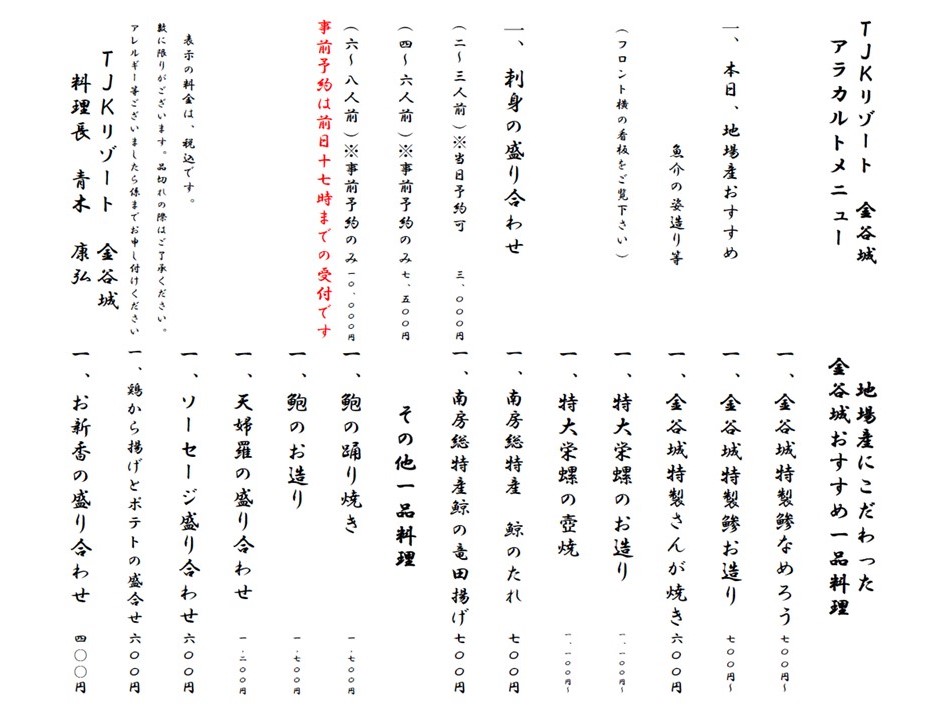 TJKリゾート 金谷城
アラカルトメニュー
一、本日、地場産おすすめ
魚介の姿造り等
(フロント横の看板をご覧下さい)
一、刺身の盛り合わせ
(二~三人前)※当日予約可 三、〇〇〇円
(四~六人前)※事前予約のみ 七、五〇〇円
(六~八人前)※事前予約のみ 一〇、〇〇〇円
事前予約は前日十七時までの受付です
表示の料金は、税込です。
数に限りがございます。品切れの際はご了承ください。
アレルギー等ございましたら係までお申し付けください
TJKリゾート 金谷城
料理長 青木 康弘
地場産にこだわった
金谷城おすすめ一品料理
一、金谷城特製鯵なめろう 七〇〇円~
一、金谷城特製鯵お造り 七〇〇円~
一、金谷城特製さんが焼き 六〇〇円
一、特大栄螺のお造り 一、一〇〇円~
一、特大栄螺の壺焼 一、一〇〇円~
一、南房総特産 鯨のたれ 七〇〇円
一、南房総特産鯨の竜田揚げ 七〇〇円
その他一品料理
一、鮑の踊り焼き 一、七〇〇円
一、鮑のお造り 一、七〇〇円
一、天婦羅の盛り合わせ 一、二〇〇円
一、ソーセージ盛り合わせ 六〇〇円
一、鶏から揚げとポテトの盛合せ 六〇〇円
一、お新香の盛り合わせ 四〇〇円